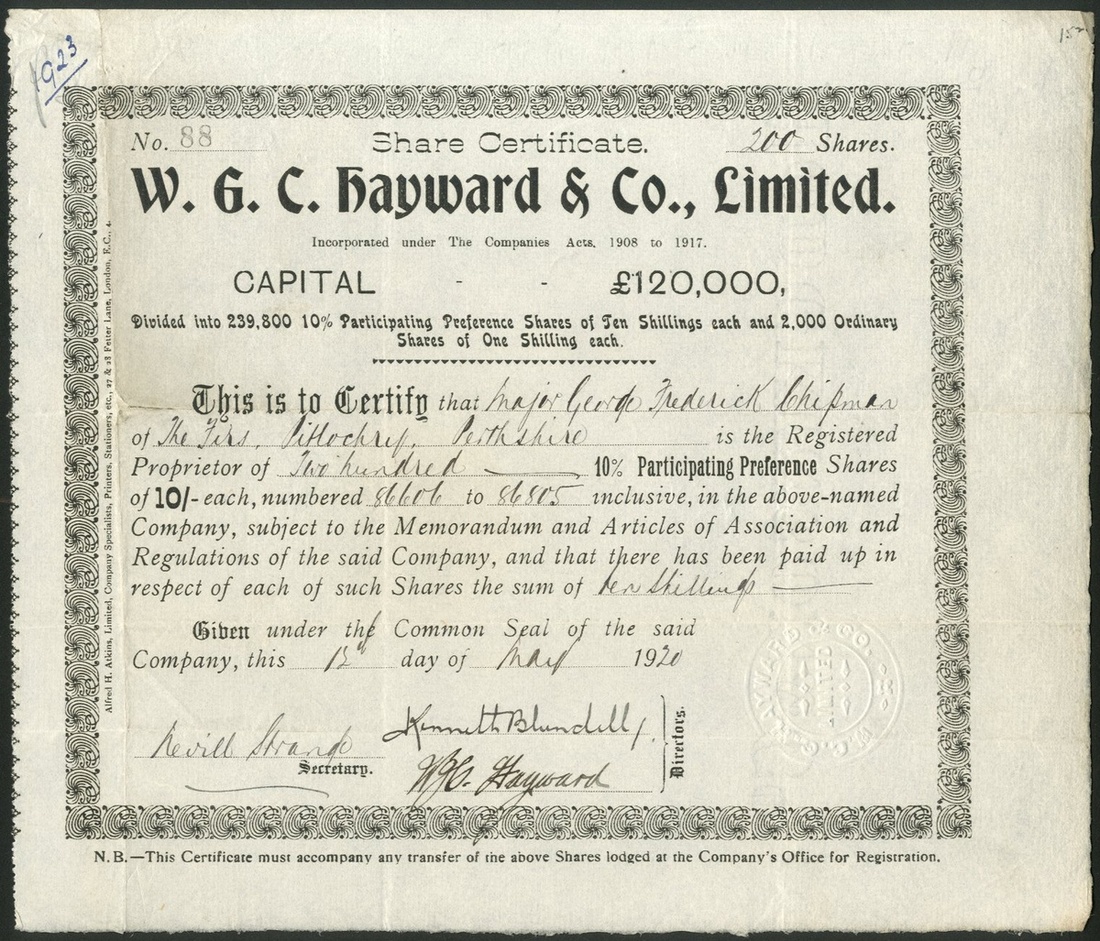 1923
No. 88 Share Certificate. 200 Shares.
W. G. C. Hayward & Co., Limited.
Incorporated under The Companies Acts, 1908 to 1917.
CAPITAL - - £120,000,
Divided into 239,800 10% Participating Preference Shares of Ten Shillings each and 2,000 Ordinary
Shares of One Shilling each.
This is to Certify that Major George Frederick Chipman
of The Firs, Pitlochry, Perthshire is the Registered
Proprietor of Two hundred 10% Participating Preference Shares
of 10/- each, numbered 86606 to 86805 inclusive, in the above-named
Company, subject to the Memorandum and Articles of Association and
Regulations of the said Company, and that there has been paid up in
respect of each of such Shares the sum of ten shillings
Given under the Common Seal of the said
Company, this 12th day of May 1920
Nevill Strange
Secretary.
Kenneth Blundell
W.G.C. Hayward
Directors.
W.G.C. HAYWARD & CO.
LIMITED
N.B.—This Certificate must accompany any transfer of the above Shares lodged at the Company's Office for Registration.
Alfred H. Atkins, Limited, Company Specialists, Printers, Stationers, etc., 27 & 28 Fetter Lane, London, E.C., 4.